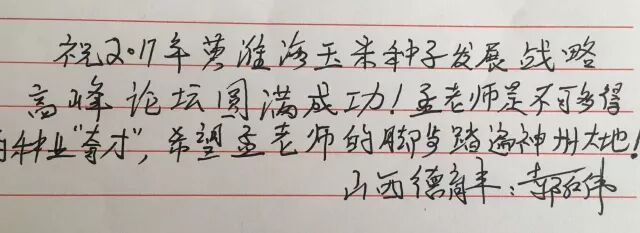 祝2017年黄淮海玉米种子发展战略
高峰论坛圆满成功!孟老师是不可多得
的种业"奇才",希望孟老师的脚步踏遍神州大地!
山西德育丰:郭红伟